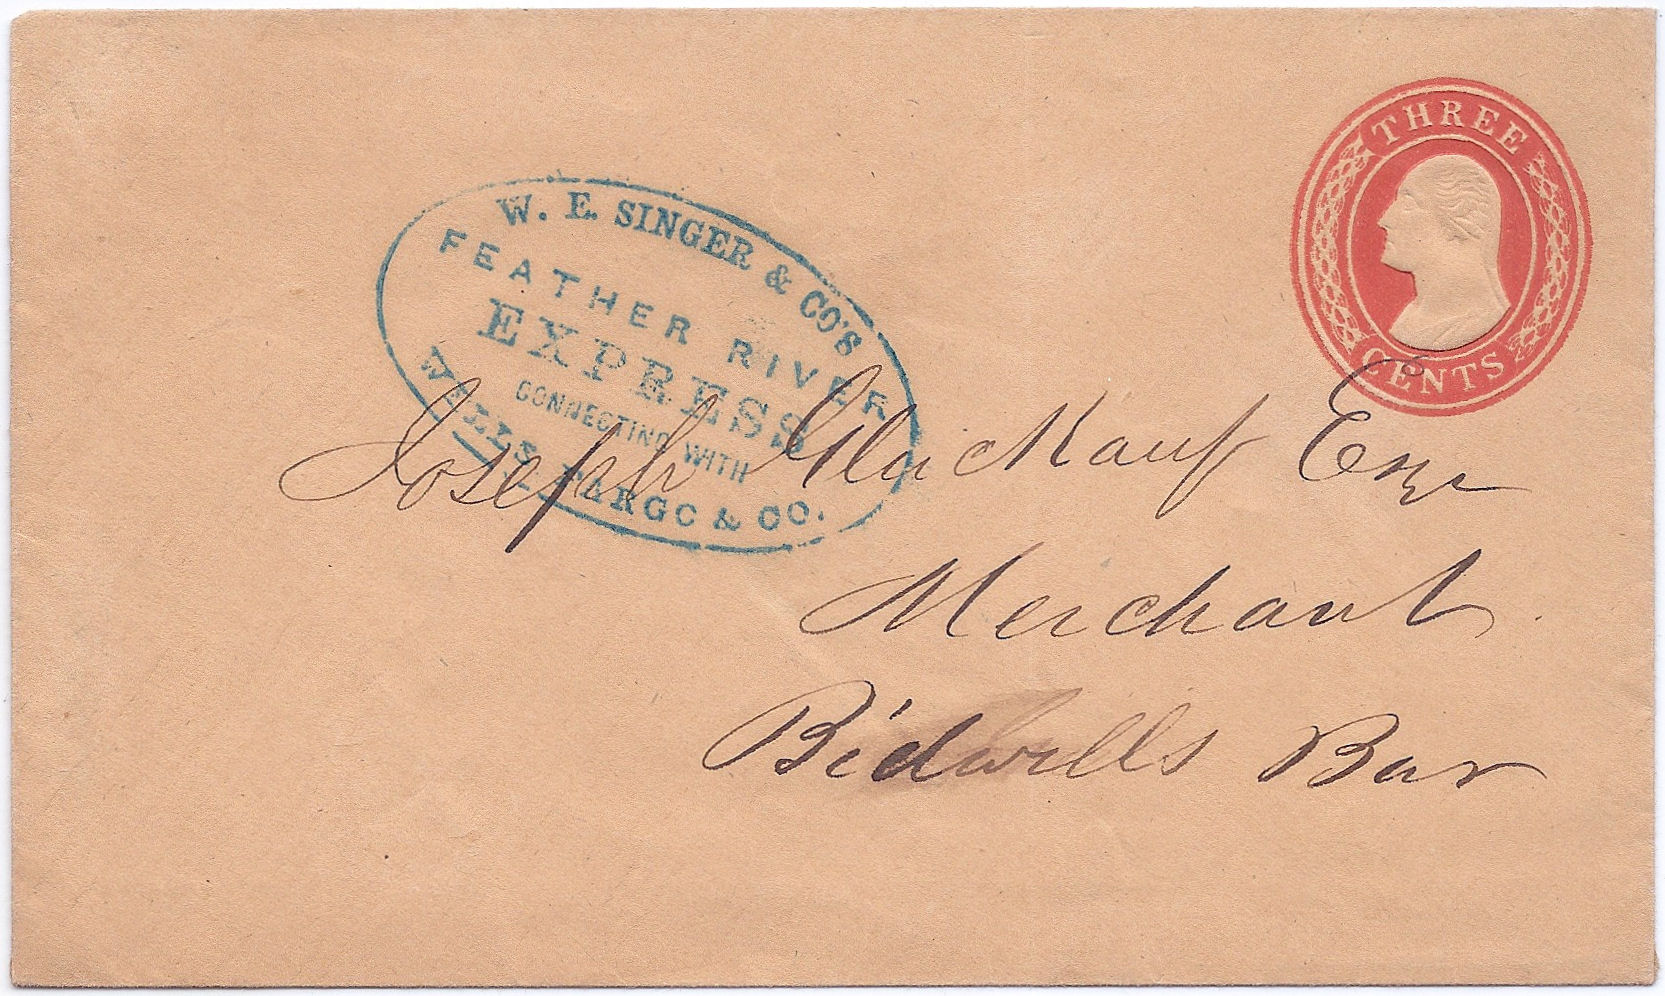 THREE
CENTS
W. E. SINGER & CO'S
FEATHER RIVER
EXPRESS
CONNECTING WITH
WELLS FARGO & CO.
Joseph Gluckauf Esqr
Merchant
Bidwells Bar